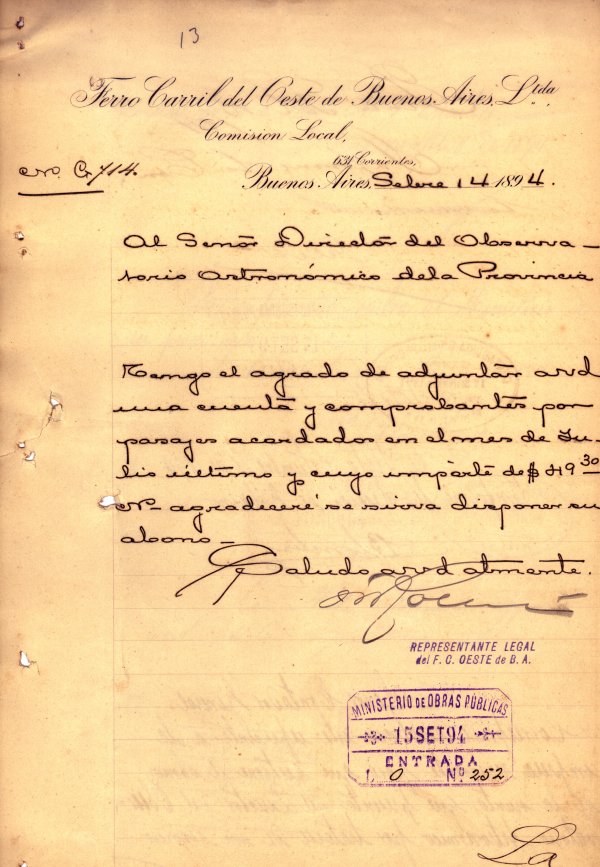 13
Ferro Carril del Oeste de Buenos Aires, Ltda
Comision Local,
631 Corrientes,
No. G 714.
Buenos Aires, Setbre 14 1894.
Al Señor Director del Observa-
torio Astronómico de la Provincia
Tengo el agrado de adjuntar a vd
una cuenta y comprobantes por
pasajes acordados en el mes de Ju-
lio último y cuyo importe de $ 49 30
agradeceré se sirva disponer su
abono-
Saludo a vd atmente.
REPRESENTANTE LEGAL
del F. C. OESTE de B. A.
MINISTERIO DE OBRAS PÚBLICAS
15 SET 94
ENTRADA
L O Nº 252
La